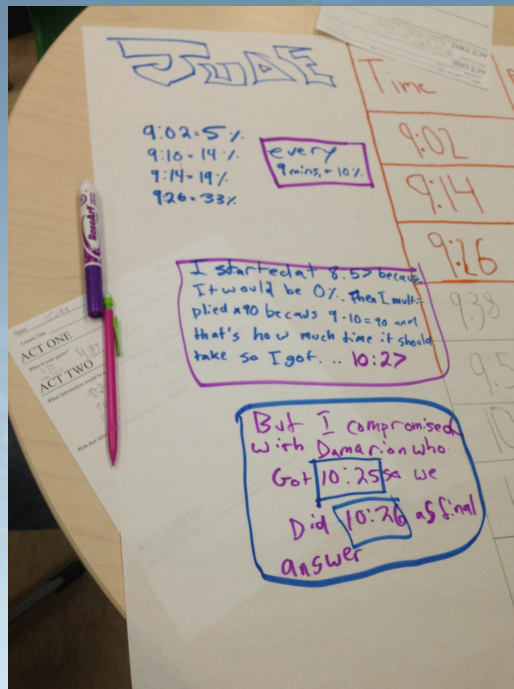 JUDE
9:02=5%
9:10=14%
9:14=19%
9:26=33%
every
9 mins, + 10%
I started at 8:57 becaus
It would be 0%. Then I multi-
plied x90 becaws 9·10=90 and
that's how much time it should
take so I got... 10:27
But I compromised
with Damarion who
Got 10:25 so we
Did 10:26 as final
answer
Time
9:02
9:14
9:26
9:38
9:5
10
RoseArt
ACT ONE
ACT TWO
ACT TWO